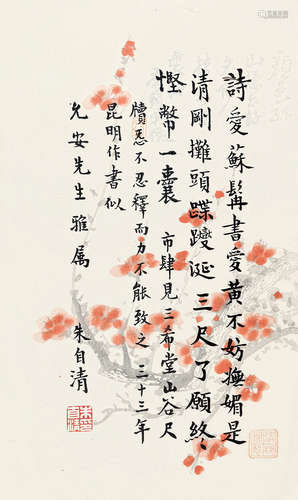 詩愛蘇髯書愛黃不妨撫媚是
清剛攤頭蹀躞涎三尺了願終
慳幣一囊 市肆見三希堂山谷尺
牘㤅不忍釋而力不能致之 三十三年
昆明作書似
允安先生雅属
朱自清